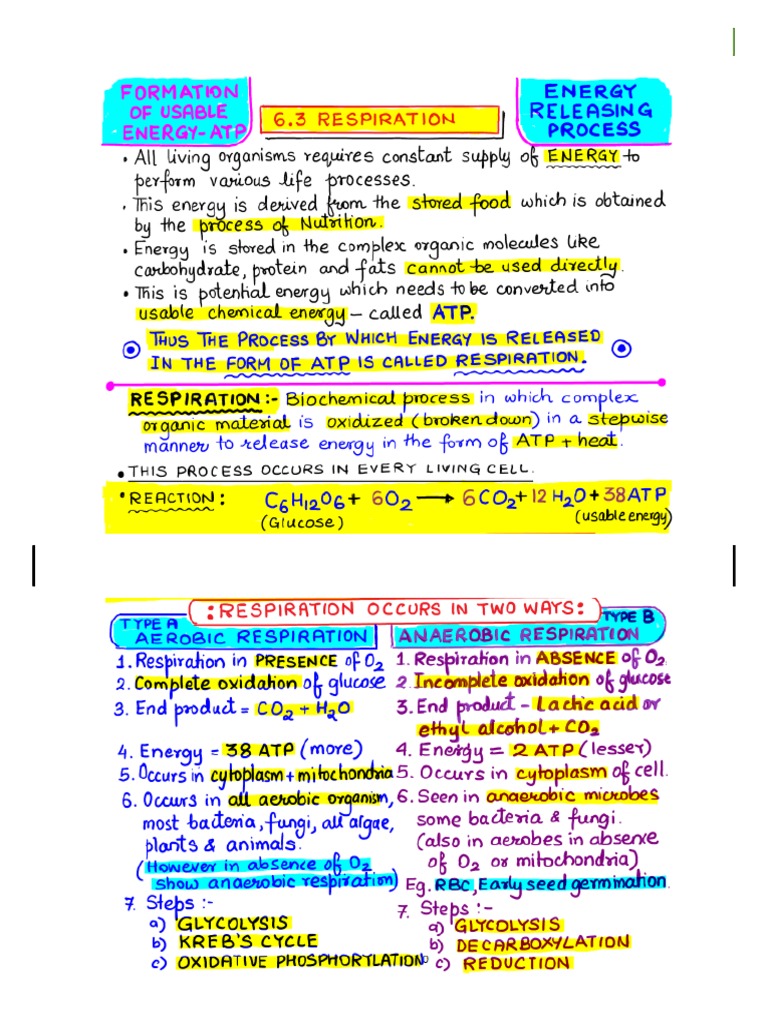 FORMATION
OF USABLE
ENERGY-ATP
6.3 RESPIRATION
ENERGY
RELEASING
PROCESS
• All living organisms requires constant supply of ENERGY to
perform various life processes.
• This energy is derived from the stored food which is obtained
by the process of Nutrition.
• Energy is stored in the complex organic molecules like
carbohydrate, protein and fats cannot be used directly.
• This is potential energy which needs to be converted into
usable chemical energy – called ATP.
THUS THE PROCESS BY WHICH ENERGY IS RELEASED
IN THE FORM OF ATP IS CALLED RESPIRATION.
RESPIRATION:- Biochemical process in which complex
organic material is oxidized (broken down) in a stepwise
manner to release energy in the form of ATP + heat.
• THIS PROCESS OCCURS IN EVERY LIVING CELL.
• REACTION: C₆H₁₂O₆ + 6O₂ → 6CO₂ + 12 H₂O + 38ATP
(Glucose) (usable energy)
:RESPIRATION OCCURS IN TWO WAYS:
TYPE A
AEROBIC RESPIRATION
1. Respiration in PRESENCE of O₂
2. Complete oxidation of glucose
3. End product = CO₂ + H₂O
4. Energy = 38 ATP (more)
5. Occurs in cytoplasm + mitochondria
6. Occurs in all aerobic organism,
most bacteria, fungi, all algae,
plants & animals.
(However in absence of O₂
show anaerobic respiration)
7. Steps :-
a) GLYCOLYSIS
b) KREB'S CYCLE
c) OXIDATIVE PHOSPHORYLATION
TYPE B
ANAEROBIC RESPIRATION
1. Respiration in ABSENCE of O₂
2. Incomplete oxidation of glucose
3. End product - Lactic acid or
ethyl alcohol + CO₂
4. Energy = 2 ATP (lesser)
5. Occurs in cytoplasm of cell.
6. Seen in anaerobic microbes
some bacteria & fungi.
(also in aerobes in absence
of O₂ or mitochondria)
Eg. RBC, Early seed germination
7. Steps :-
a) GLYCOLYSIS
b) DECARBOXYLATION
c) REDUCTION